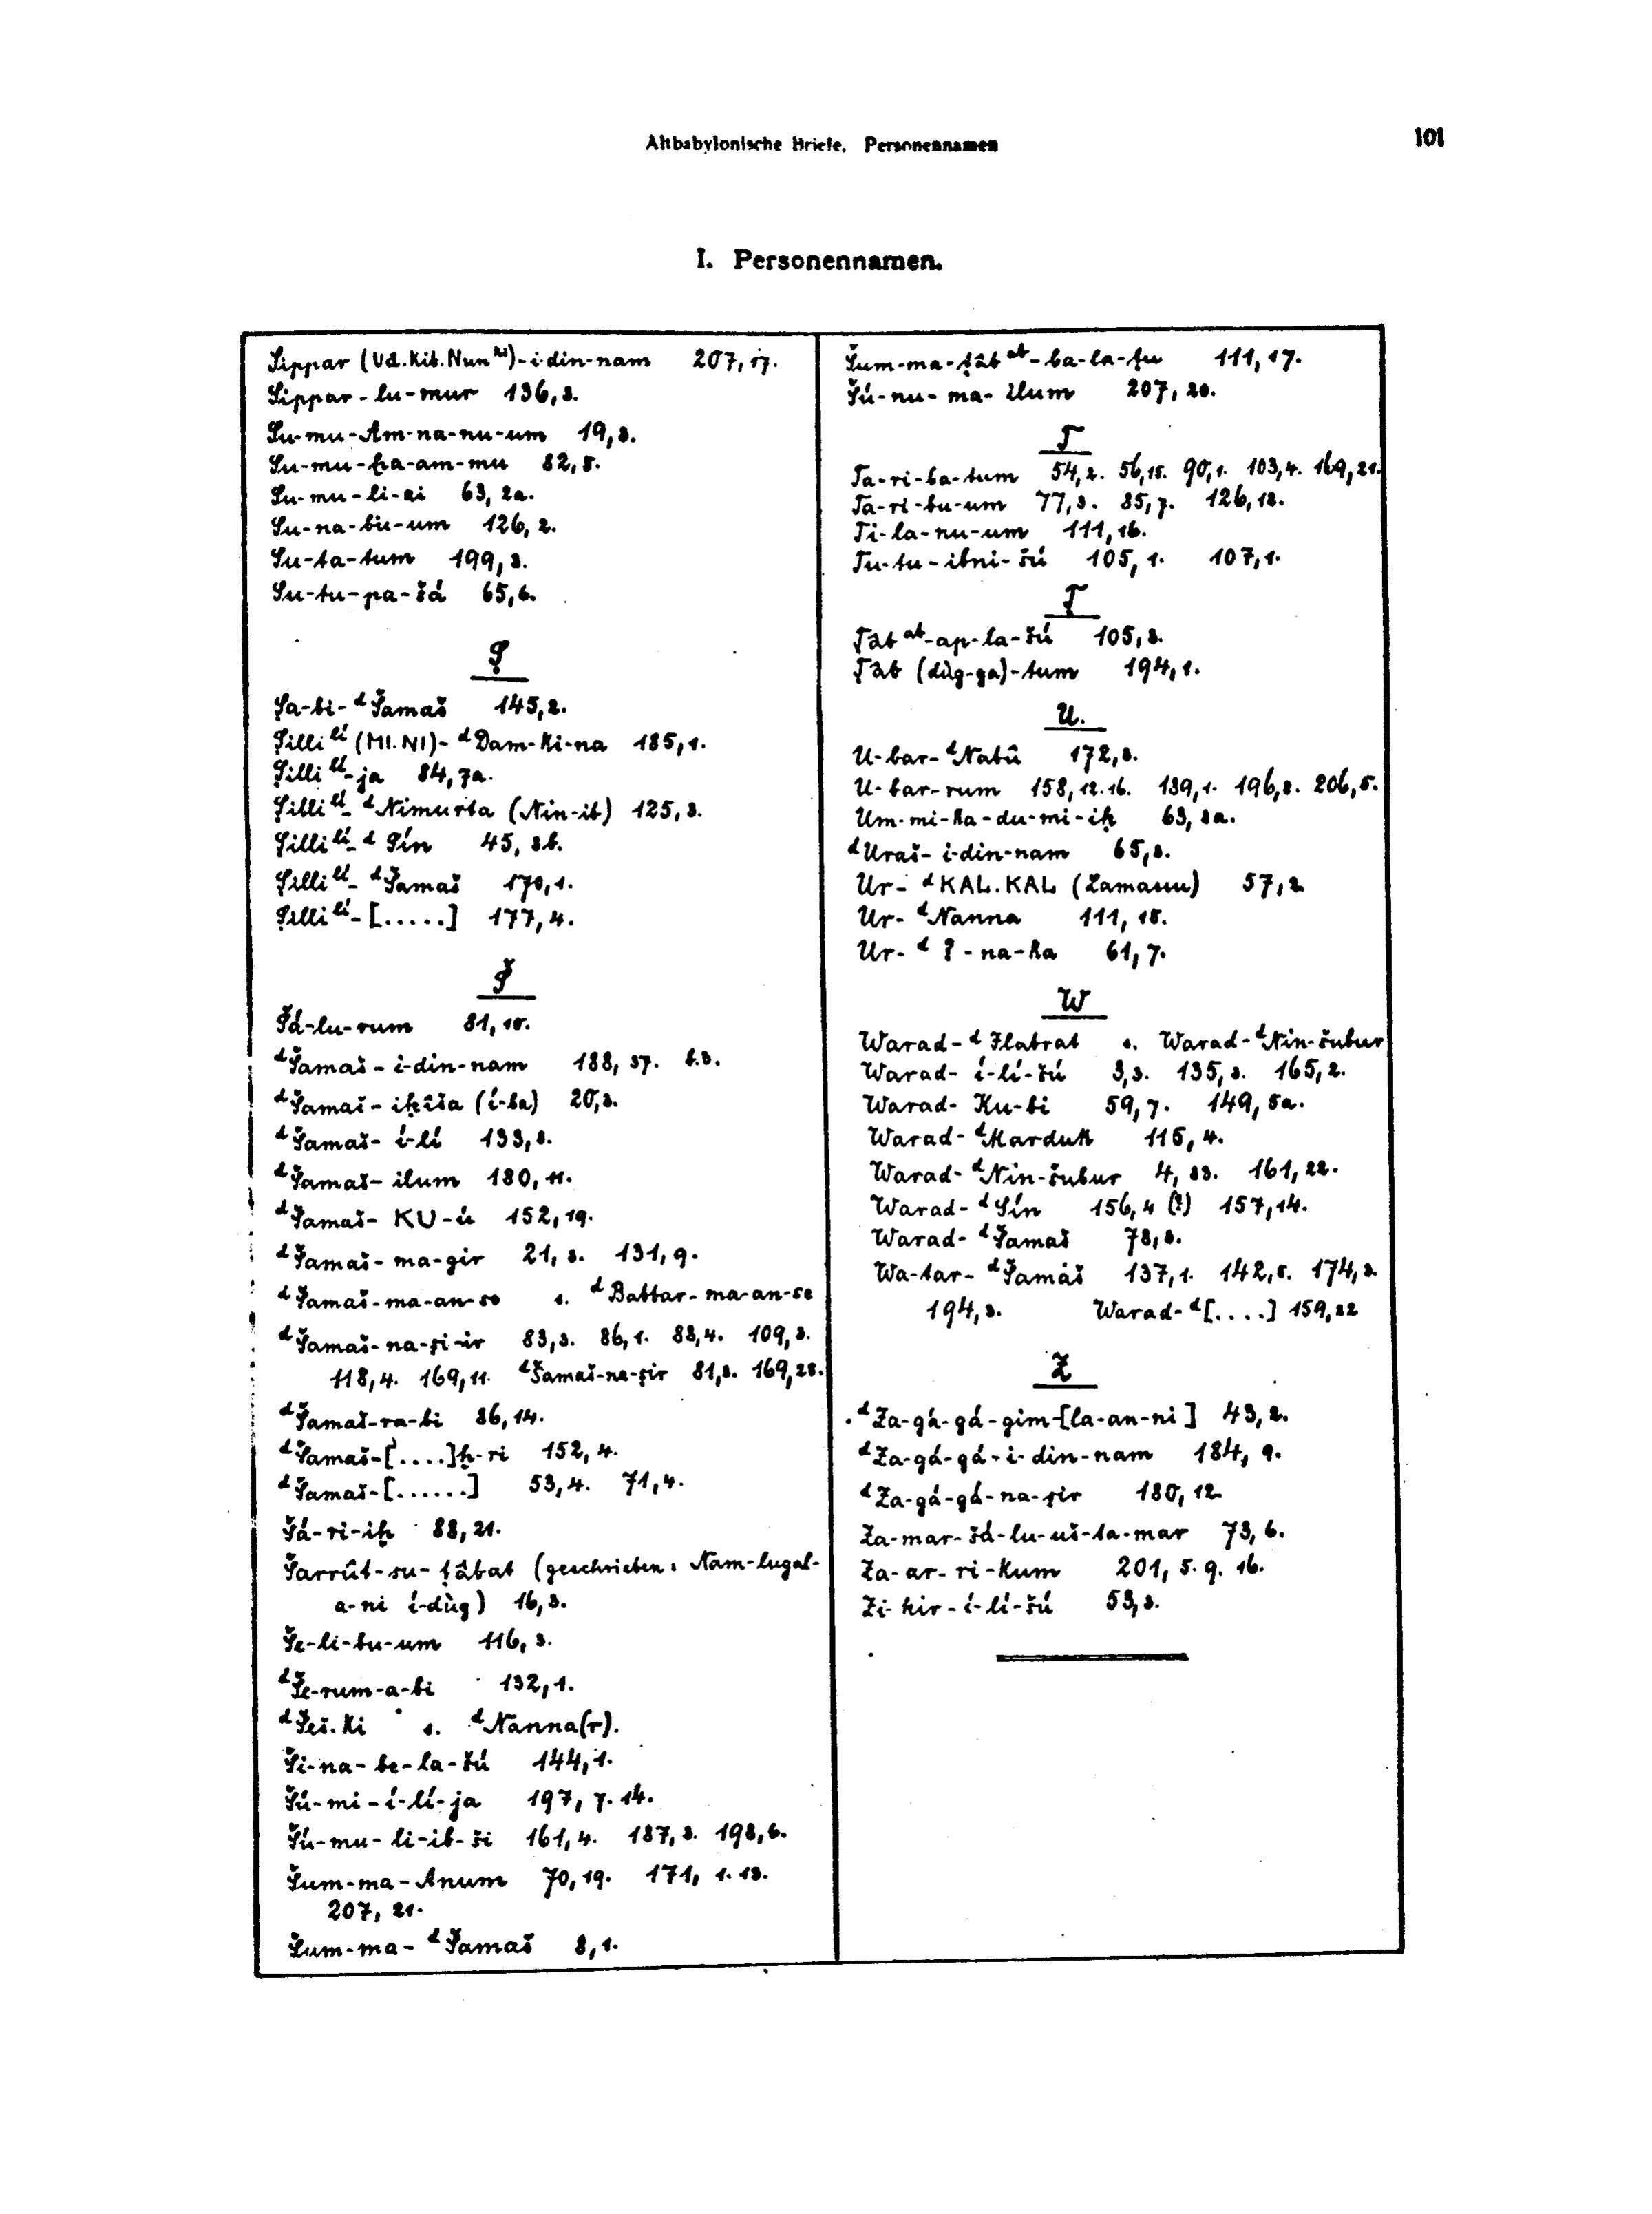 Altbabylonische Briefe. Personennamen
101
I. Personennamen.
Sippar (Ud.Kib.Nun ᵏⁱ)-i-din-nam 207, 17.
Sippar-lu-mur 136, 3.
Su-mu-Am-na-nu-um 19, 3.
Su-mu-ḫa-am-mu 82, 5.
Su-mu-li-ṣi 63, 2a.
Su-na-bu-um 126, 2.
Su-ta-tum 199, 3.
Su-tu-pa-šá 65, 6.
Ṣ
Ṣa-bi-ᵈŠamaš 145, 2.
Ṣilli ˡí (MI.NI)-ᵈDam-ki-na 185, 1.
Ṣilli ˡí-ja 84, 7a.
Ṣilli ˡí-ᵈNimurta (Nin-ib) 125, 3.
Ṣilli ˡí-ᵈSín 45, 3b.
Ṣilli ˡí-ᵈŠamaš 170, 1.
Ṣilli ˡí-[.....] 177, 4.
Š
Šá-lu-rum 81, 15.
ᵈŠamaš-i-din-nam 188, 37.
ᵈŠamaš-iḳîša (í-ba) 20, 3.
ᵈŠamaš-í-lí 133, 3.
ᵈŠamaš-ilum 180, 11.
ᵈŠamaš-KU-ú 152, 19.
ᵈŠamaš-ma-gir 21, 3. 131, 9.
ᵈŠamaš-ma-an-se s. ᵈBabbar-ma-an-se
ᵈŠamaš-na-ṣi-ir 83, 3. 86, 1. 88, 4. 109, 3.
118, 4. 169, 11. ᵈŠamaš-na-ṣir 81, 3. 169, 25.
ᵈŠamaš-ra-bi 86, 14.
ᵈŠamaš-[....]ḫ-ri 152, 4.
ᵈŠamaš-[......] 53, 4. 71, 4.
Šá-ri-iḫ 88, 21.
Šarrût-su-ṭâbat (geschrieben: Nam-lugal-
a-ni í-dùg) 16, 3.
Še-li-bu-um 116, 3.
ᵈŠe-rum-a-bi 132, 1.
ᵈŠeš.ki s. ᵈNanna(r).
Ši-na-be-la-šú 144, 1.
Šú-mi-í-lí-ja 197, 7. 14.
Šú-mu-li-ib-ši 161, 4. 187, 3. 198, 6.
Šum-ma-Anum 70, 19. 171, 1. 13.
207, 21.
Šum-ma-ᵈŠamaš 8, 1.
Šum-ma-ṭâb ᵃᵇ-ba-la-ṭu 111, 17.
Šú-nu-ma-ilum 207, 20.
T
Ta-ri-ba-tum 54, 2. 56, 15. 90, 1. 103, 4. 169, 21.
Ta-ri-bu-um 77, 3. 85, 7. 126, 12.
Ti-la-nu-um 111, 16.
Tu-tu-ibni-šú 105, 1. 107, 1.
Ṭ
Ṭâb ᵃᵇ-ap-la-šú 105, 3.
Ṭâb (dùg-ga)-tum 194, 1.
U.
U-bar-ᵈNabû 172, 3.
U-bar-rum 158, 12. 16. 189, 1. 196, 3. 206, 5.
Um-mi-ka-du-mi-iḳ 63, 3a.
ᵈUraš-i-din-nam 65, 3.
Ur-ᵈKAL.KAL (Lamassu) 57, 2
Ur-ᵈNanna 111, 15.
Ur-ᵈ?-na-ka 61, 7.
W
Warad-ᵈIlabrat s. Warad-ᵈNin-šubur
Warad-í-lí-šú 3, 3. 135, 3. 165, 2.
Warad-Ku-bi 59, 7. 149, 5a.
Warad-ᵈMarduk 115, 4.
Warad-ᵈNin-šubur 4, 33. 161, 22.
Warad-ᵈSín 156, 4 (?) 157, 14.
Warad-ᵈŠamaš 78, 3.
Wa-tar-ᵈŠamáš 137, 1. 142, 5. 174, 3.
194, 3. Warad-ᵈ[....] 159, 22
Z
ᵈZa-gà-gá-gim-[la-an-ni] 43, 2.
ᵈZa-gá-gá-i-din-nam 184, 9.
ᵈZa-gá-gá-na-ṣir 180, 12
Za-mar-šá-lu-uš-ta-mar 73, 6.
Za-ar-ri-kum 201, 5. 9. 16.
Zi-kir-í-lí-šú 53, 3.